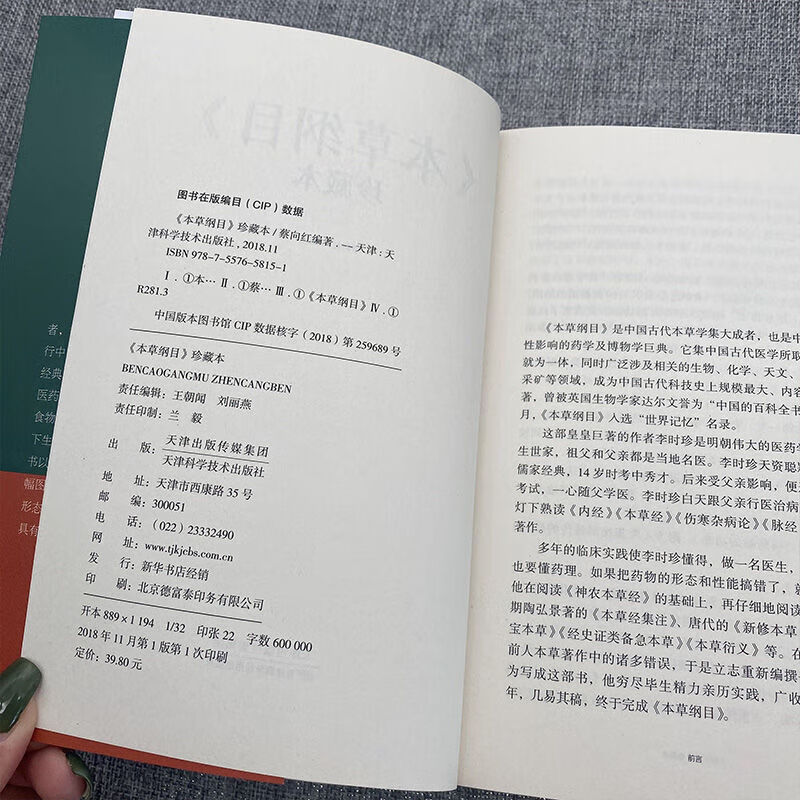 图书在版编目（CIP）数据
《本草纲目》珍藏本 / 蔡向红编著. — 天津：天
津科学技术出版社，2018.11
ISBN 978-7-5576-5815-1
Ⅰ. ①本… Ⅱ. ①蔡… Ⅲ. ①《本草纲目》Ⅳ. ①
R281.3
中国版本图书馆 CIP 数据核字（2018）第 259689 号
《本草纲目》珍藏本
BENCAOGANGMU ZHENCANGBEN
责任编辑：王朝闻 刘丽燕
责任印制：兰 毅
出 版：天津出版传媒集团
天津科学技术出版社
地 址：天津市西康路 35 号
邮 编：300051
电 话：（022）23332490
网 址：www.tjkjcbs.com.cn
发 行：新华书店经销
印 刷：北京德富泰印务有限公司
开本 889×1 194 1/32 印张 22 字数 600 000
2018 年 11 月第 1 版第 1 次印刷
定价：39.80 元
者，
行中
经典
医药
食物
下生
书以
幅图
形态
具有
《本草纲目》是中国古代本草学集大成者，也是中
性影响的药学及博物学巨典。它集中国古代医学所取
就为一体，同时广泛涉及相关的生物、化学、天文、
采矿等领域，成为中国古代科技史上规模最大、内容
著，曾被英国生物学家达尔文誉为“中国的百科全书
月，《本草纲目》入选“世界记忆”名录。
这部皇皇巨著的作者李时珍是明朝伟大的医药学
生世家，祖父和父亲都是当地名医。李时珍天资聪
儒家经典，14 岁时中秀才。后来受父亲影响，便
考试，一心随父学医。李时珍白天跟父亲行医治病
灯下熟读《内经》《本草经》《伤寒杂病论》《脉经
著作。
多年的临床实践使李时珍懂得，做一名医生，
也要懂药理。如果把药物的形态和性能搞错了，就
他在阅读《神农本草经》的基础上，再仔细地阅读
期陶弘景著的《本草经集注》、唐代的《新修本草
宝本草》《经史证类备急本草》《本草衍义》等。在
前人本草著作中的诸多错误，于是立志重新编撰
为写成这部书，他穷尽毕生精力亲历实践，广收
年，几易其稿，终于完成《本草纲目》。
前言